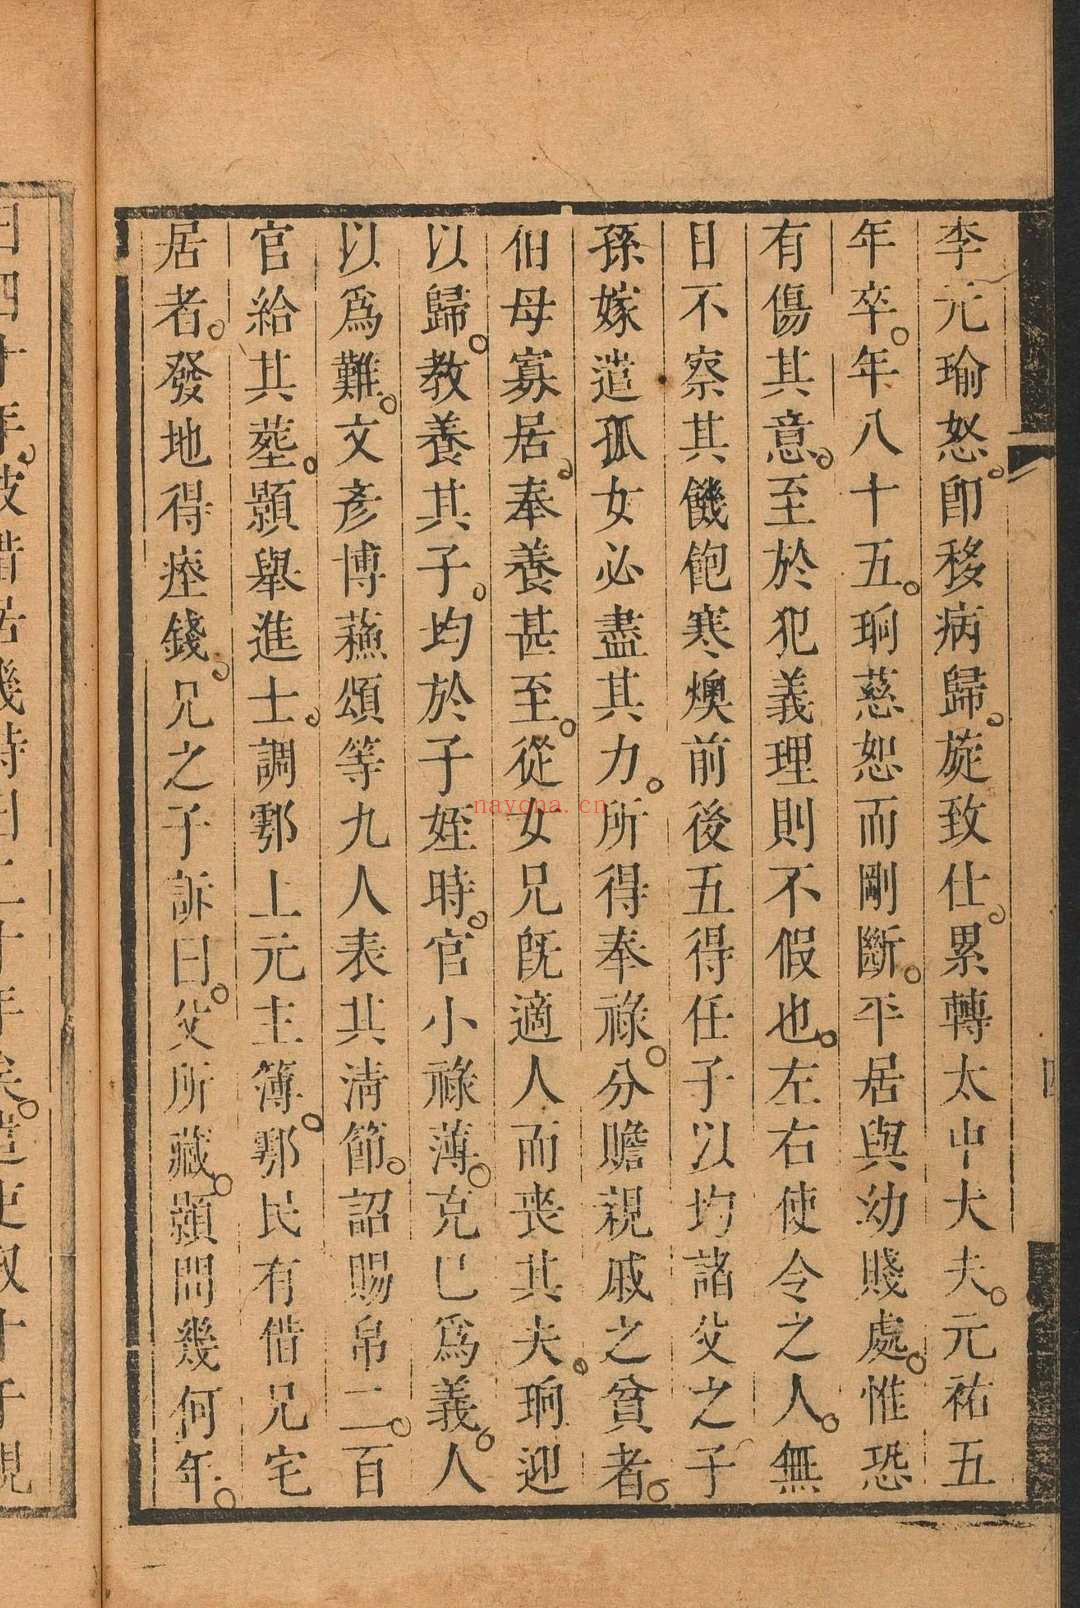 李元瑜怒。卽移病歸。旋致仕。累轉太中大夫。元祐五
年卒。年八十五。珦慈恕而剛斷。平居與幼賤處。惟恐
有傷其意。至於犯義理則不假也。左右使令之人。無
日不察其饑飽寒燠前後五得任子以均諸父之子
孫嫁遣孤女必盡其力。所得奉祿。分贍親戚之貧者。
伯母寡居。奉養甚至。從女兄旣適人而喪其夫。珦迎
以歸。教養其子。均於子姪時。官小祿薄。克己爲義。人
以爲難。文彥博蘓頌等九人表其淸節。詔賜帛二百
官給其塟。顥舉進士。調鄠上元主簿。鄠民有借兄宅
居者。發地得瘞錢。兄之子訴曰。父所藏。顥問幾何年。
曰四十年。彼借居幾時曰二十年矣。遣吏取十千視
nayona.cn